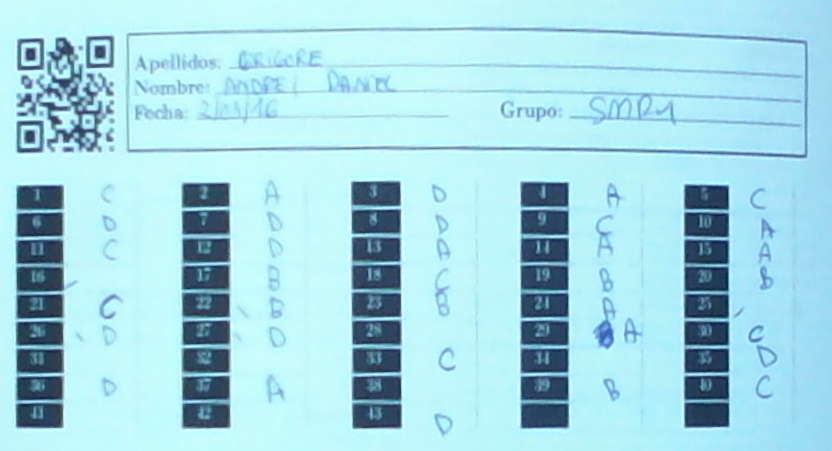 Apellidos: GRIGORE
Nombre: ANDREI DANIEL
Fecha: 2/03/16 Grupo: SMR1
1 C 2 A 3 D 4 A 5 C
6 D 7 D 8 D 9 C 10 A
11 C 12 D 13 A 14 A 15 A
16 17 B 18 C 19 B 20 B
21 C 22 B 23 B 24 A 25
26 D 27 D 28 29 A 30 C
31 32 33 C 34 35 D
36 D 37 A 38 39 B 40 C
41 42 43 D